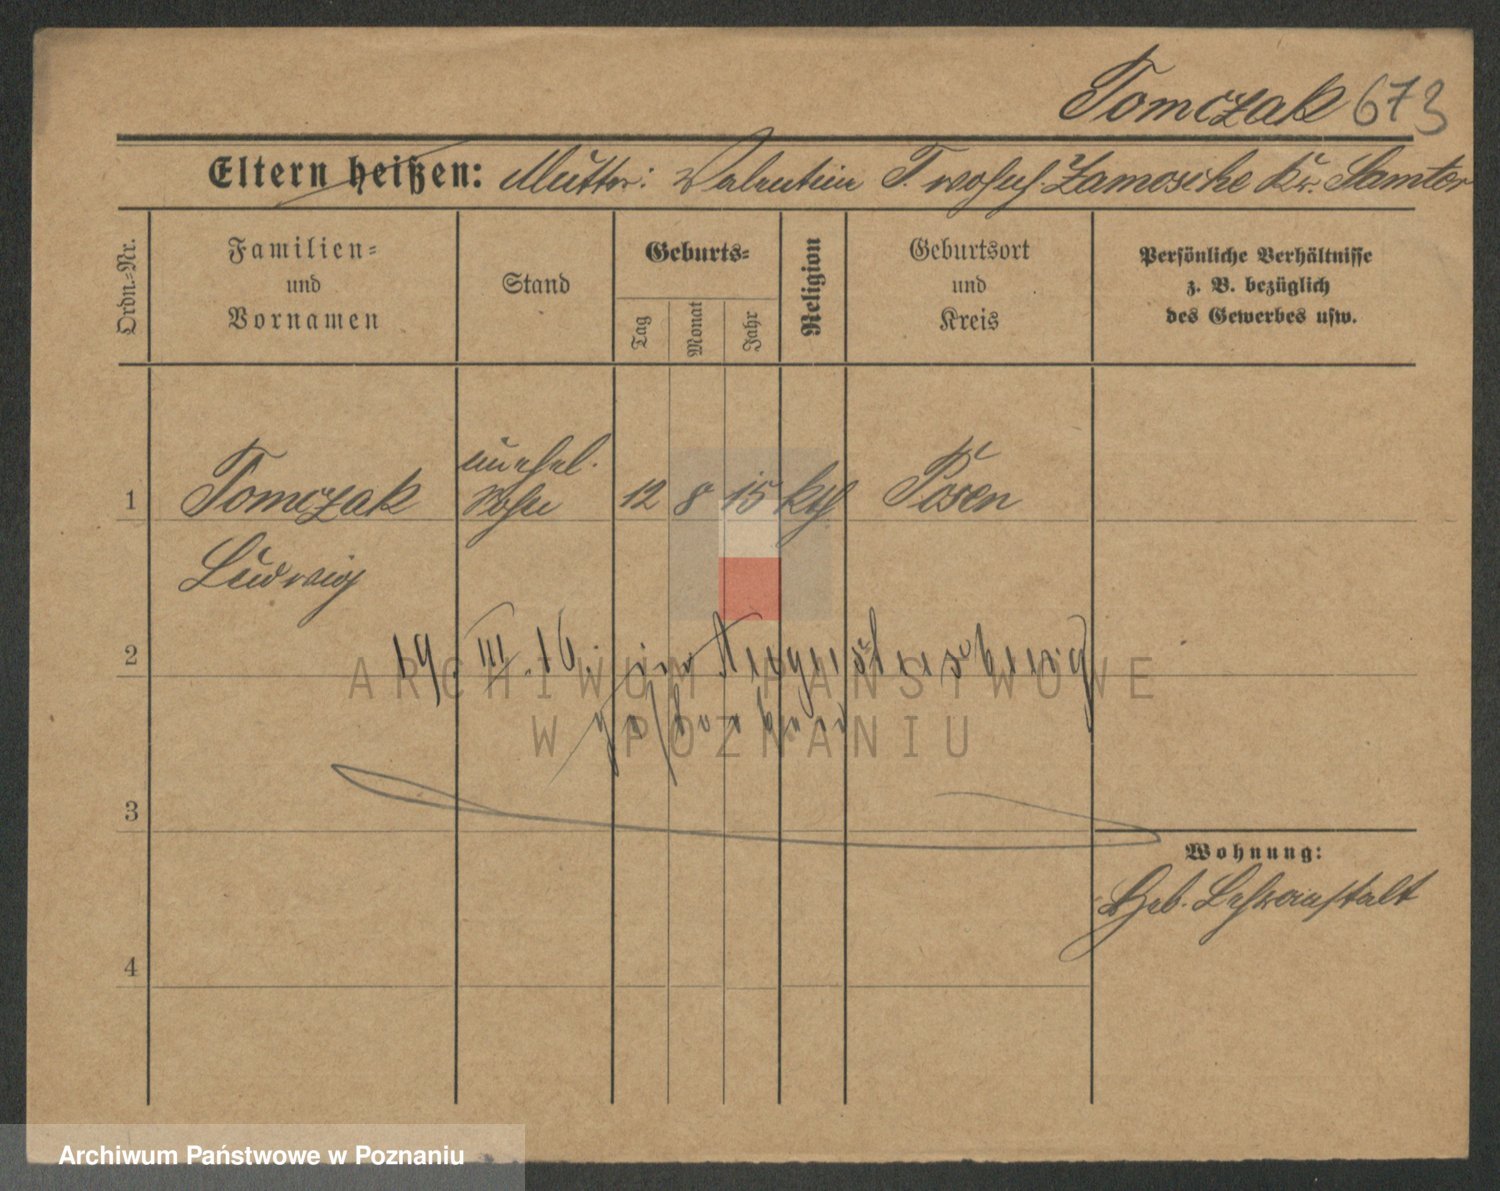 Tomczak 673
Eltern heißen: Mutter: Valentine T. wohnh. Zamosche Kr. Samter
Ordn.-Nr.
Familien-
und
Vornamen
Stand
Geburts-
Tag
Monat
Jahr
Religion
Geburtsort
und
Kreis
Persönliche Verhältnisse
z. B. bezüglich
des Gewerbes usw.
1 Tomczak unehel. Sohn 12 8 15 kth Posen
Ludwig
2
19. III. 16. im
gestorben
3
4
Wohnung:
Heb. Lehranstalt
ARCHIWUM PAŃSTWOWE
W POZNANIU
Archiwum Państwowe w Poznaniu